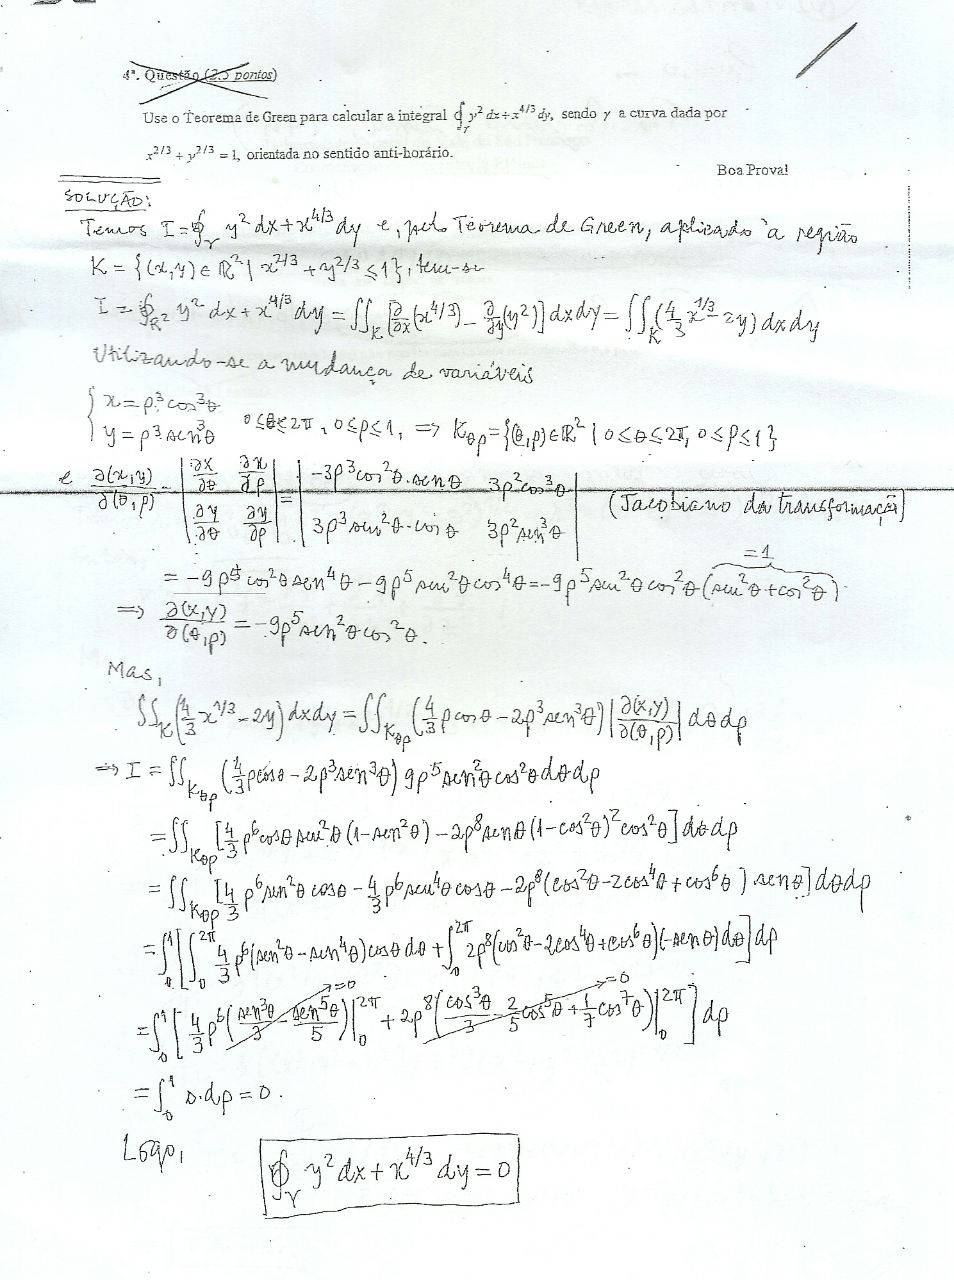 4ª. Questão (2.5 pontos)
Use o Teorema de Green para calcular a integral ∮_γ y² dx + x^{4/3} dy, sendo γ a curva dada por
x^{2/3} + y^{2/3} = 1, orientada no sentido anti-horário.
Boa Prova!
SOLUÇÃO:
Temos I = ∮_γ y² dx + x^{4/3} dy e, pelo Teorema de Green, aplicado à região
K = {(x,y) ∈ ℝ² | x^{2/3} + y^{2/3} ≤ 1}, tem-se
I = ∮_{K²} y² dx + x^{4/3} dy = ∬_K [∂/∂x (x^{4/3}) - ∂/∂y (y²)] dxdy = ∬_K (4/3 x^{1/3} - 2y) dxdy
Utilizando-se a mudança de variáveis
{ x = ρ³cos³θ
y = ρ³sen³θ 0 ≤ θ ≤ 2π, 0 ≤ ρ ≤ 1, ⇒ K_{θρ} = {(θ,ρ) ∈ ℝ² | 0 ≤ θ ≤ 2π, 0 ≤ ρ ≤ 1}
e ∂(x,y)/∂(θ,ρ) = |∂x/∂θ ∂x/∂ρ ; ∂y/∂θ ∂y/∂ρ| = |-3ρ³cos²θ·senθ 3ρ²cos³θ ; 3ρ³sen²θ·cosθ 3ρ²sen³θ| (Jacobiano da transformação)
= -9ρ⁵cos²θsen⁴θ - 9ρ⁵sen²θcos⁴θ = -9ρ⁵sen²θcos²θ(sen²θ + cos²θ) =1
⇒ ∂(x,y)/∂(θ,ρ) = -9ρ⁵sen²θcos²θ.
Mas,
∬_K (4/3 x^{1/3} - 2y) dxdy = ∬_{Kθρ} (4/3 ρcosθ - 2ρ³sen³θ) |∂(x,y)/∂(θ,ρ)| dθdρ
⇒ I = ∬_{Kθρ} (4/3 ρcosθ - 2ρ³sen³θ) 9ρ⁵sen²θcos²θdθdρ
= ∬_{Kθρ} [4/3 ρ⁶cosθsen²θ(1-sen²θ) - 2ρ⁸senθ(1-cos²θ)²cos²θ] dθdρ
= ∬_{Kθρ} [4/3 ρ⁶sen²θcosθ - 4/3 ρ⁶sen⁴θcosθ - 2ρ⁸(cos²θ - 2cos⁴θ + cos⁶θ) senθ] dθdρ
= ∫₀¹ [∫₀^{2π} 4/3 ρ⁶(sen²θ - sen⁴θ)cosθdθ + ∫₀^{2π} 2ρ⁸(cos²θ - 2cos⁴θ + cos⁶θ)(-senθ)dθ] dρ
= ∫₀¹ [4/3 ρ⁶(sen³θ/3 - sen⁵θ/5)|₀^{2π} =0 + 2ρ⁸(cos³θ/3 - 2/5 cos⁵θ + 1/7 cos⁷θ)|₀^{2π} =0] dρ
= ∫₀¹ 0·dρ = 0.
Logo,
∮_γ y² dx + x^{4/3} dy = 0